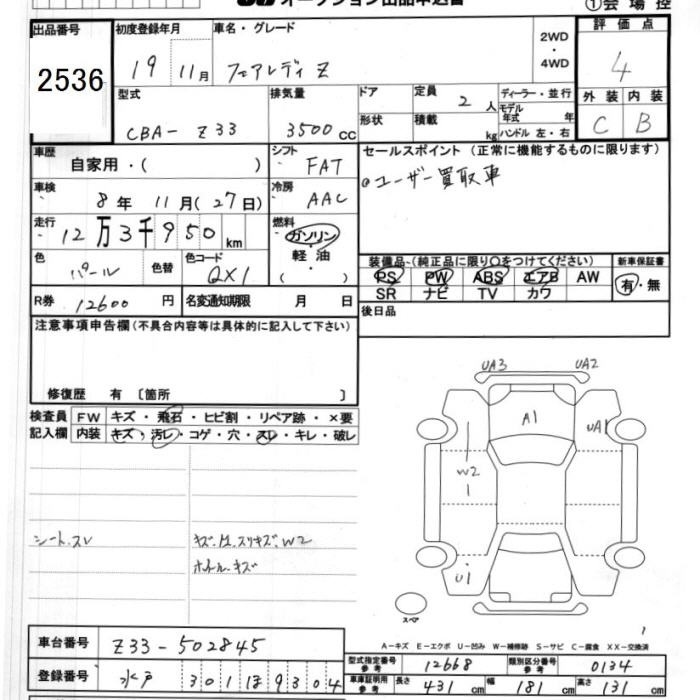 オークション出品申込書 ①会場控
出品番号 初度登録年月 車名・グレード 2WD・4WD 評価点
2536 19 11月 フェアレディ Z 4
型式 排気量 ドア 定員 2人 ディーラー・並行 外装 内装
CBA- Z33 3500cc 形状 積載 kg モデル年式 年 ハンドル 左・右 C B
車歴 自家用・( ) シフト FAT セールスポイント (正常に機能するものに限ります)
車検 8年 11月(27日) 冷房 AAC ユーザー買取車
走行 12万3千950km 燃料 ガソリン・軽油・( )
色 パール 色替 色コード QX1 装備品-(純正品に限り○をつけてください) 新車保証書
PS PW ABS エアB AW 有・無
SR ナビ TV カワ
R券 12600円 名変通知期限 月 日 後日品
注意事項申告欄(不具合内容等は具体的に記入して下さい)
修復歴 有〔箇所 〕
検査員 FW キズ・飛石・ヒビ割・リペア跡・×要
記入欄 内装 キズ・汚レ・コゲ・穴・スレ・キレ・破レ
UA3 UA2
A1 UA1
W2
U1
シート.スレ キズ.凹.スリキズ.W2
ホイール.キズ
スペア
A-キズ E-エクボ U-凹み W-補修跡 S-サビ C-腐食 XX-交換済
車台番号 Z33-502845
登録番号 水戸 301 ほ 9304
型式指定番号 参考 12668 類別区分番号 参考 0134
車庫証明用 参考 長さ 431cm 幅 181cm 高さ 131cm